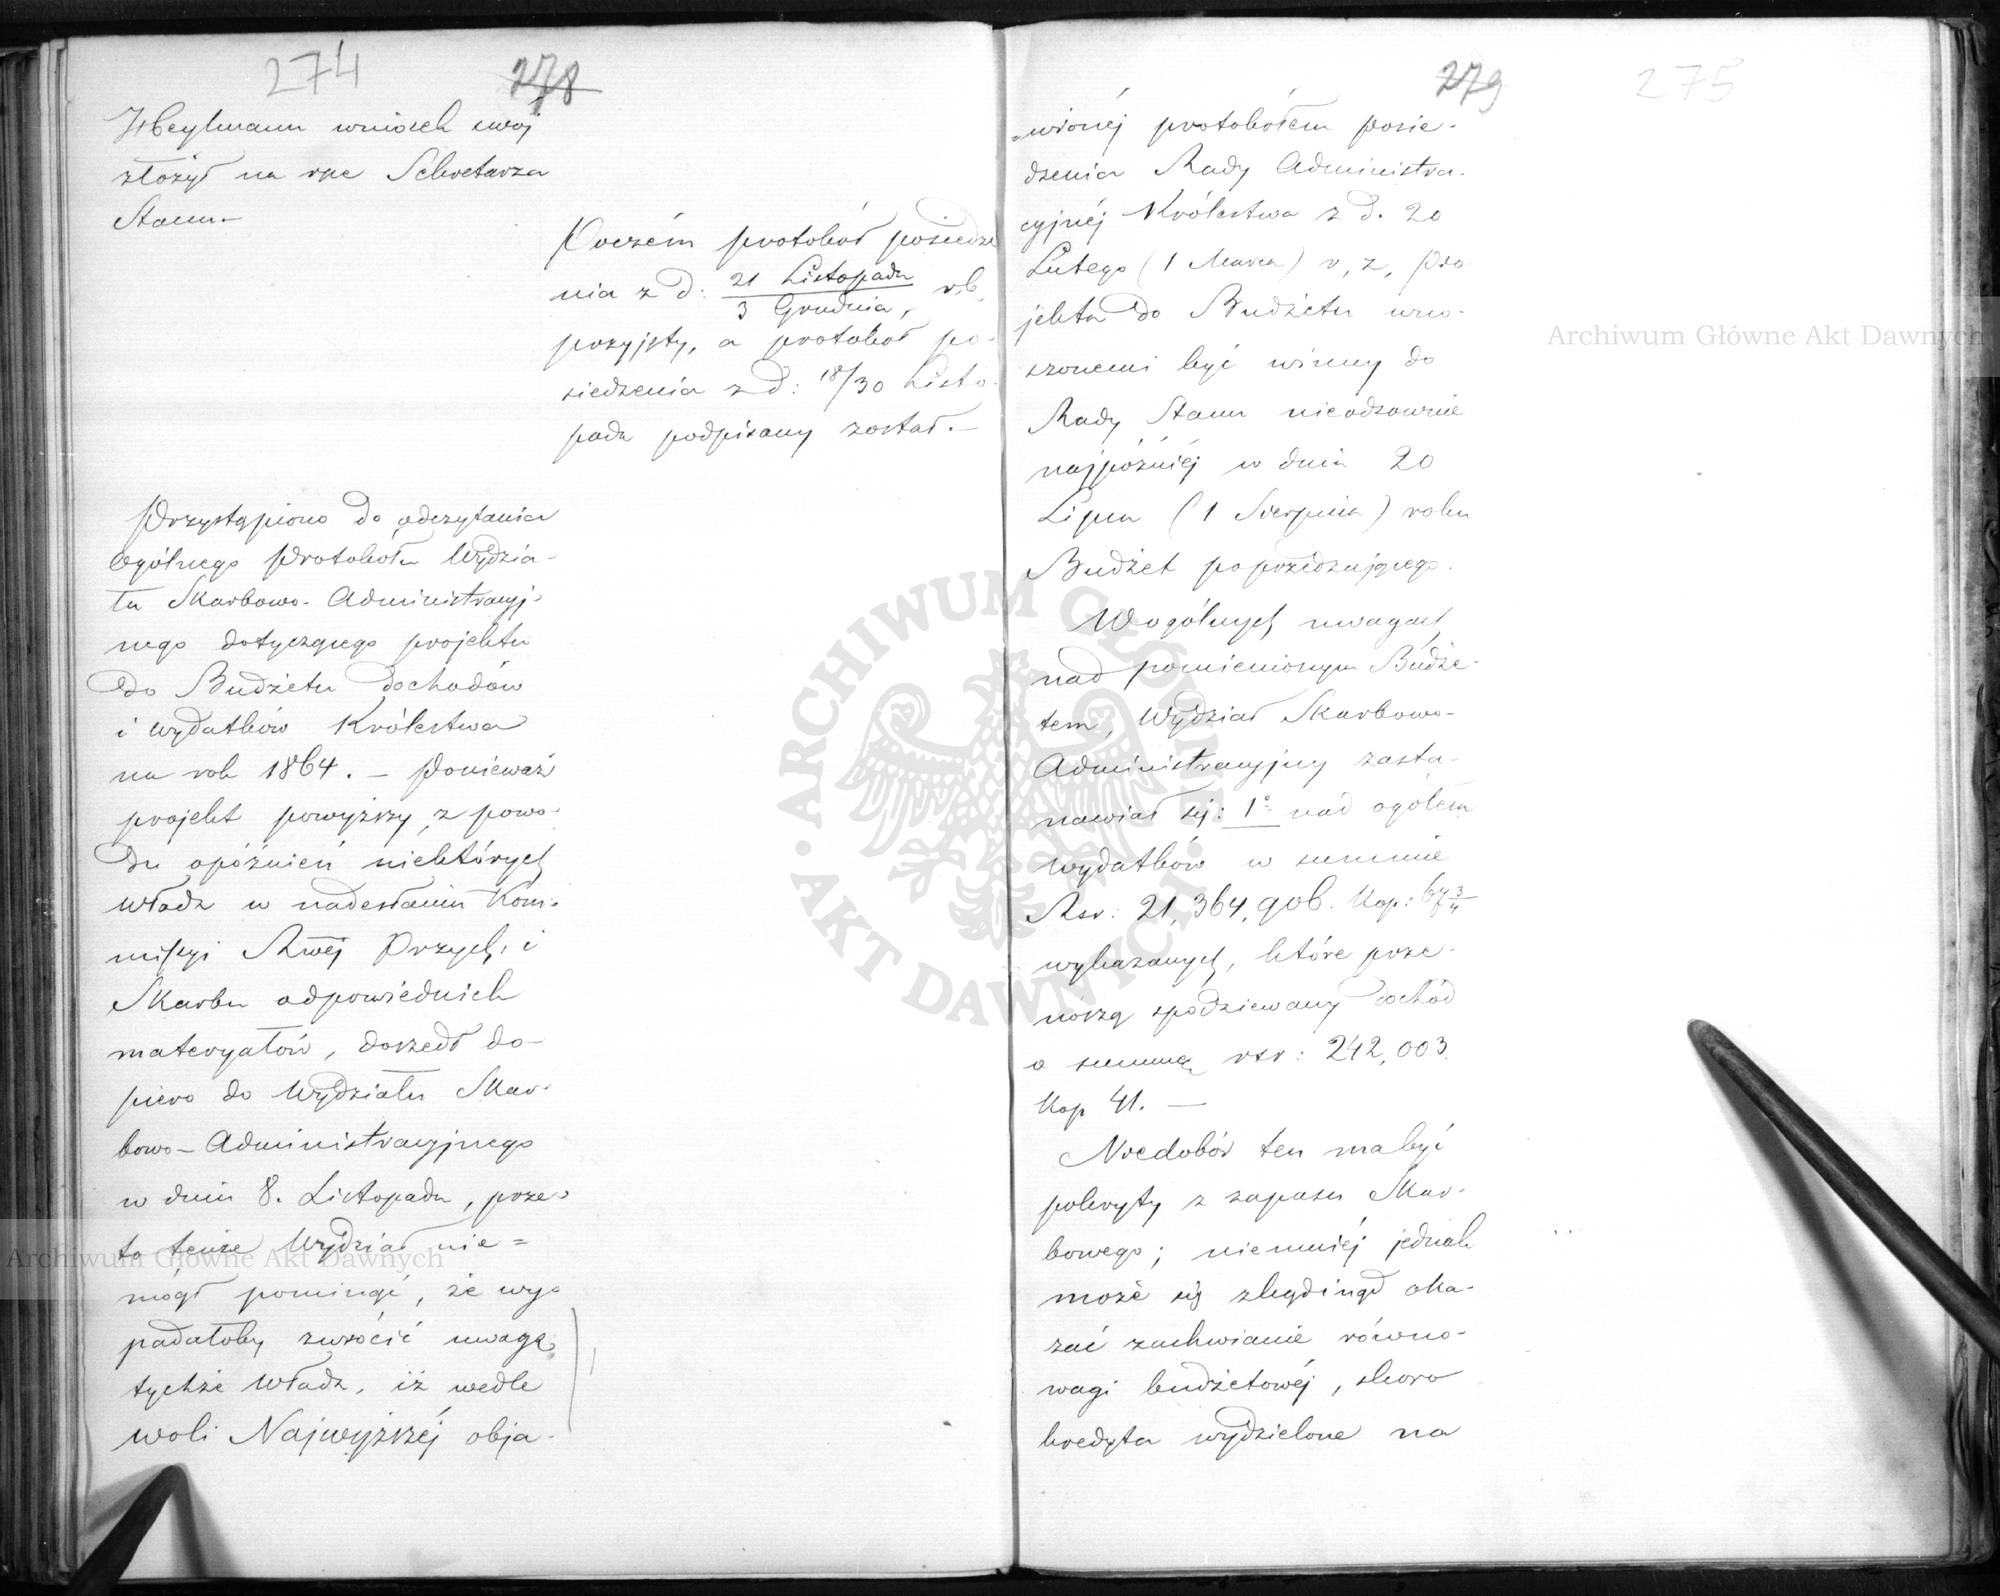 274 278
Heylmann wniosek swój
złożył na ręce Sekretarza
Stanu.—
Poczém protokół posiedze
nia z d: 21 Listopada / 3 Grudnia, r.b.
przyjęty, a protokół po-
siedzenia z d: 18/30 Listo-
pada podpisany został.—
Przystąpiono do odczytania
ogólnego Protokółu Wydzia-
łu Skarbowo-Administracyj-
nego dotyczącego projektu
do Budżetu dochodów
i wydatków Królestwa
na rok 1864. — Ponieważ
projekt powyższy, z powo-
du opóźnień niektórych
władz w nadesłaniu Kom-
missyi Rwéj Przych. i
Skarbu odpowiednich
materyałów, doszedł do-
piero do Wydziału Skar-
bowo-Administracyjnego
w dniu 8. Listopada, prze-
to tenże Wydział nie=
mógł pominąć, że wy-
padałoby zwrócić uwagę
tychże władz, iż wedle
woli Najwyższéj obja-
279 275
=wionéj protokółem posie-
dzenia Rady Administra-
cyjnéj Królestwa z d. 20
Lutego (1 Marca) r, z, pro
jekta do Budżetu wno-
szonemi być winny do
Rady Stanu nieodzownie
najpóźniéj w dniu 20
Lipca (1 Sierpnia) roku
Budżet poprzedzającego.
W ogólnych uwagach
nad pomienionym Budże-
tem, Wydział Skarbowo-
Administracyjny zasta-
nawiał się: 1° nad ogółem
wydatków w summie
Rsr: 21,364,908. Kop: 67 3/4
wykazanych, które prze-
noszą spodziewany dochód
o summę rsr: 242,003.
Kop 41. —
Niedobór ten ma być
pokryty z zapasu Skar-
bowego; niemniéj jednak
może się zkądinąd oka-
zać zachwianie równo-
wagi budżetowéj, skoro
kredyta wydzielone na
Archiwum Główne Akt Dawnych
Archiwum Główne Akt Dawnych
ARCHIWUM GŁÓWNE AKT DAWNYCH